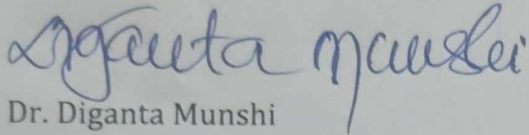 Diganta Munshi
Dr. Diganta Munshi